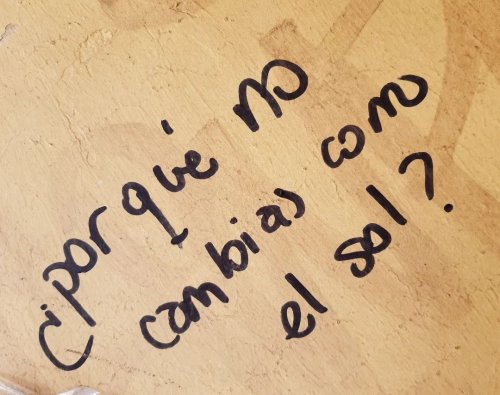 ¿porqué no
cambias como
el sol?